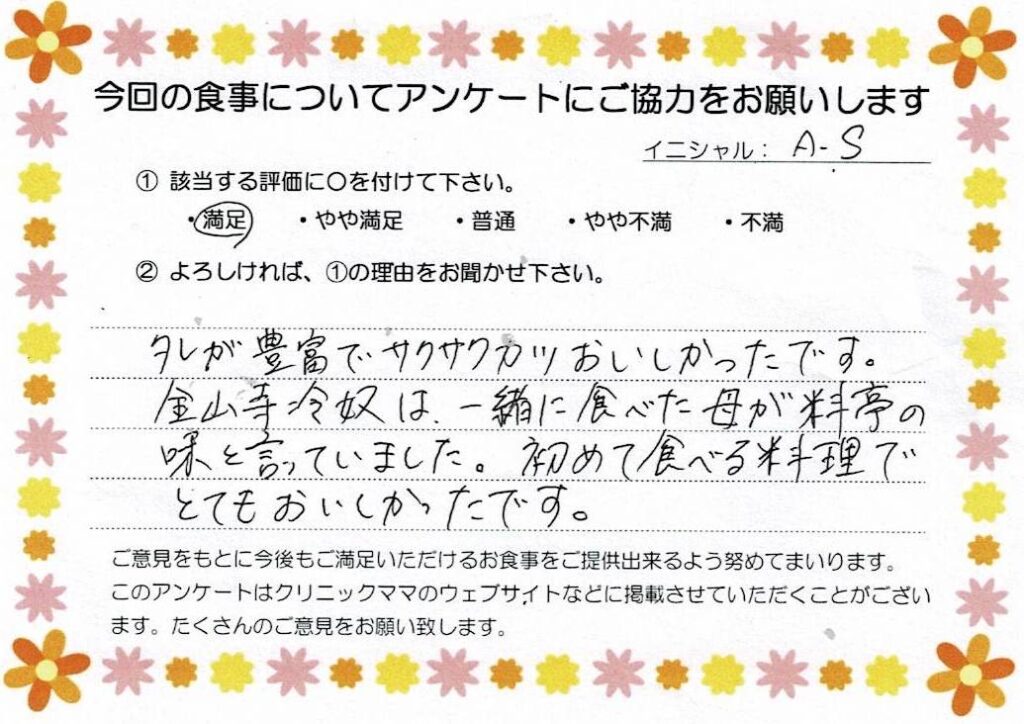 今回の食事についてアンケートにご協力をお願いします
イニシャル： A-S
① 該当する評価に〇を付けて下さい。
・満足 ・やや満足 ・普通 ・やや不満 ・不満
② よろしければ、①の理由をお聞かせ下さい。
タレが豊富でサクサクカツおいしかったです。
金山寺冷奴は、一緒に食べた母が料亭の
味と言っていました。初めて食べる料理で
とてもおいしかったです。
ご意見をもとに今後もご満足いただけるお食事をご提供出来るよう努めてまいります。
このアンケートはクリニックママのウェブサイトなどに掲載させていただくことがござい
ます。たくさんのご意見をお願い致します。